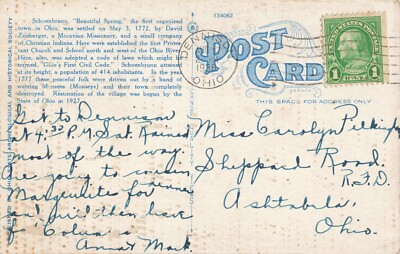 Schoenbrunn, "Beautiful Spring," the first organized
town in Ohio, was settled on May 3, 1772, by David
Zeisberger, a Moravian Missionary, and a small company
of Christian Indians. Here were established the first Protes-
tant Church and School north and west of the Ohio River.
Here, too, was adopted a code of laws which might be
termed, "Ohio's First Civil Code." Schoenbrunn attained
at its height, a population of 414 inhabitants. In the year
1777 these peaceful folk were driven out by a band of
warring Monseys (Monseys) and their town completely
destroyed. Restoration of the village was begun by the
State of Ohio in 1927.
134062
POST
CARD
THIS SPACE FOR ADDRESS ONLY
DENNISON
OHIO
UNITED STATES POSTAGE
1 CENT 1
ARCHAEOLOGICAL AND HISTORICAL SOCIETY
Got to Dennison
at 4:30 P.M. Sat. Rained
most of the way.
Are going to cousin
Marguerite for dinner
and will then leave
for Columbus
Anna & Mark.
Miss Carolyn Pilkington
Sheppard Road.
R.F.D.
Ashtabula,
Ohio.